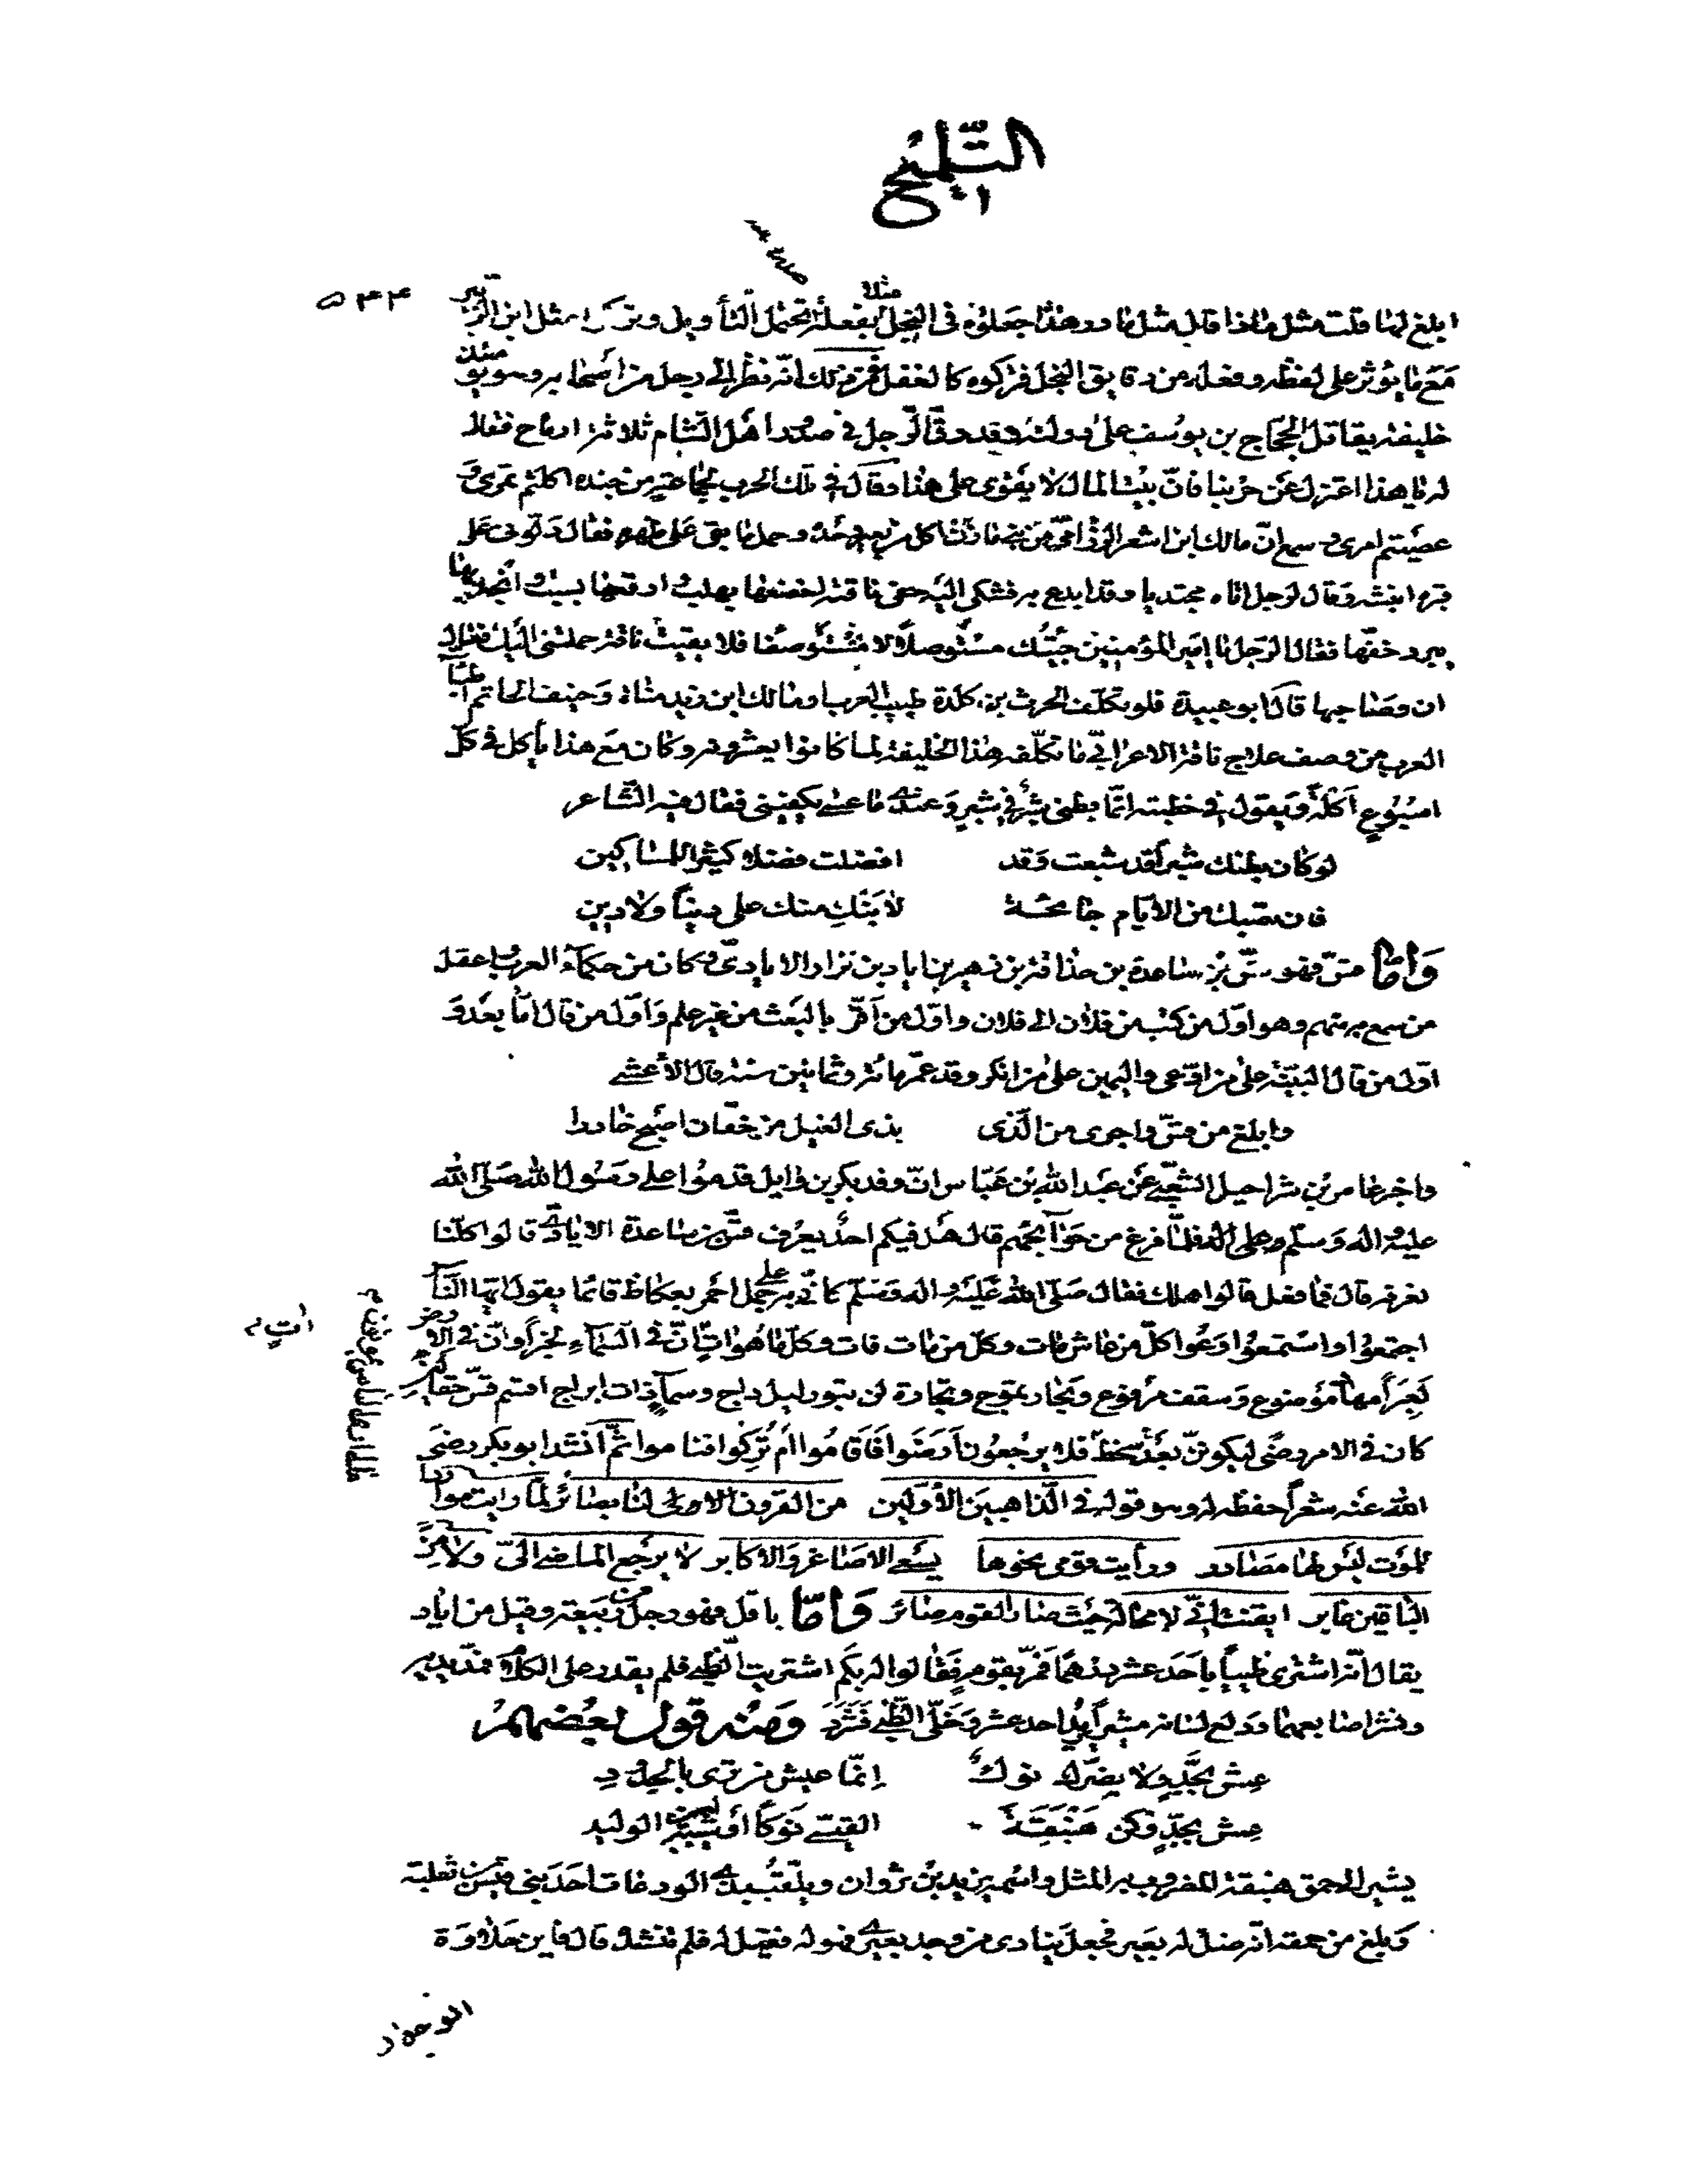 التلميح
٥٤٤
ابلغ لما قلت مثل ماذا قال مثل مادر هذا جعلوه في البخل مثلا بفعلة تحتمل التأويل وتركوا مثل ابن الزبير
مع ما يؤثر على لفظه وفعله من دقايق البخل فتركوه كالغفل فمن ذلك انه نظر الى رجل من اصحابه وهو يومئذ
خليفة يقاتل الحجاج بن يوسف على دولته وقد دق الرجل في صدور اهل الشام ثلاثة ارماح فقال
له يا هذا اعتزل عن حربنا فان بيت المال لا يقوى على هذا وقال في تلك الحرب لجماعة من جنده اكلتم تمرى و
عصيتم امرى وسمع ان مالك ابن اشعر الرزامى من بنى مازن اكل من بعير وحده وحمل ما بقى على ظهره فقال دلونى على
قبره انبشه وقال لرجل اتاه مجتديا وقد ابدع به فشكى اليه حفى ناقته اخصفها بهلب وارقعها بسبت وانجد بها
يبرد خفها فقال الرجل يا امير المؤمنين جئتك مستوصلا لا مستوصفا فلا بقيت ناقة حملتنى اليك فقال
ان وصاحبها قال ابو عبيدة فلو تكلف الحرث بن كلدة طبيب العرب ومالك ابن زيد مناة وحنيف الحاتم اطبا
العرب من وصف علاج ناقة الاعرابى ما تكلفه هذا الخليفة لما كانوا يعشرونه وكان مع هذا يأكل في كل
اسبوع اكلة ويقول في خطبته انما بطنى شبر في شبر وعندى ما عسى يكفينى فقال فيه الشاعر
لو كان بطنك شبرا قد شبعت وقد افضلت فضلا كثيرا للمساكين
فان تصبك من الايام جائحة لا نبك منك على دنيا ولا دين
واما قس فهو قس بن ساعدة بن حذافة بن زهير بن اياد بن نزار الايادى وكان من حكماء العرب واعقل
من سمع به منهم وهو اول من كتب من فلان الى فلان واول من اقر بالبعث من غير علم واول من قال اما بعد و
اول من قال البينة على من ادعى واليمين على من انكر وقد عمر مائة وثمانين سنة قال الاعشى
وابلغ من قس واجرى من الذى بذى الغيل من خفان اصبح خادرا
واخبر عامر بن شراحيل الشعبى عن عبد الله بن عباس ان وفد بكر بن وايل قدموا على رسول الله صلى الله
عليه واله وسلم وعلى اله فلما فرغ من حوائجهم قال هل فيكم احد يعرف قس بن ساعدة الايادى قالوا كلنا
نعرفه قال فما فعل قالوا هلك فقال صلى الله عليه واله وسلم كانى به على جمل احمر بعكاظ قائما يقول ايها الناس
اجتمعوا واستمعوا وعوا كل من عاش مات وكل من مات فات وكل ما هو ات ات ان في السماء لخبرا وان في الارض
لعبرا مهاد موضوع وسقف مرفوع وبحار تموج وتجارة لن تبور ليل داج وسماء ذات ابراج اقسم قس حقا لئن
كان في الامر رضى ليكونن بعده سخط فلا يرجعون أرضوا فأقاموا أم تركوا فناموا ثم انشد ابو بكر رضى
الله عنه شعرا حفظه له وهو قوله في الذاهبين الأولين من القرون الاولى لنا بصائر لما رايت مواردا
للموت ليس لها مصادر ورأيت قومى نحوها يسعى الاصاغر والاكابر لا يرجع الماضى الى ولا من
الباقين غابر ايقنت انى لا محالة حيث صار القوم صائر واما باقل فهو رجل من ربيعة وقيل من اياد
يقال انه اشترى ظبيا باحد عشر درهما فمر بقوم فقالوا له بكم اشتريت الظبى فلم يقدر على الكلام فمد يديه
ونشر اصابعهما ودلع لسانه مشيرا الى احد عشر وخلى الظبى فشرد ومنه قول بعضهم
عش بجد ولا يضرك نوك انما عيش من ترى بالجدود
عش بجد وكن هبنقة القيسى نوكا او شيبة الوليد
يشير الى حمق هبنقة المضروب به المثل واسمه يزيد بن ثروان ويلقب بذى الودعات احد بنى قيس بن ثعلبة
وبلغ من حمقه انه ضل له بعير فجعل ينادى من وجد بعيرى فهو له فقيل له فلم تنشده قال فاين حلاوة
ات
الوجدان